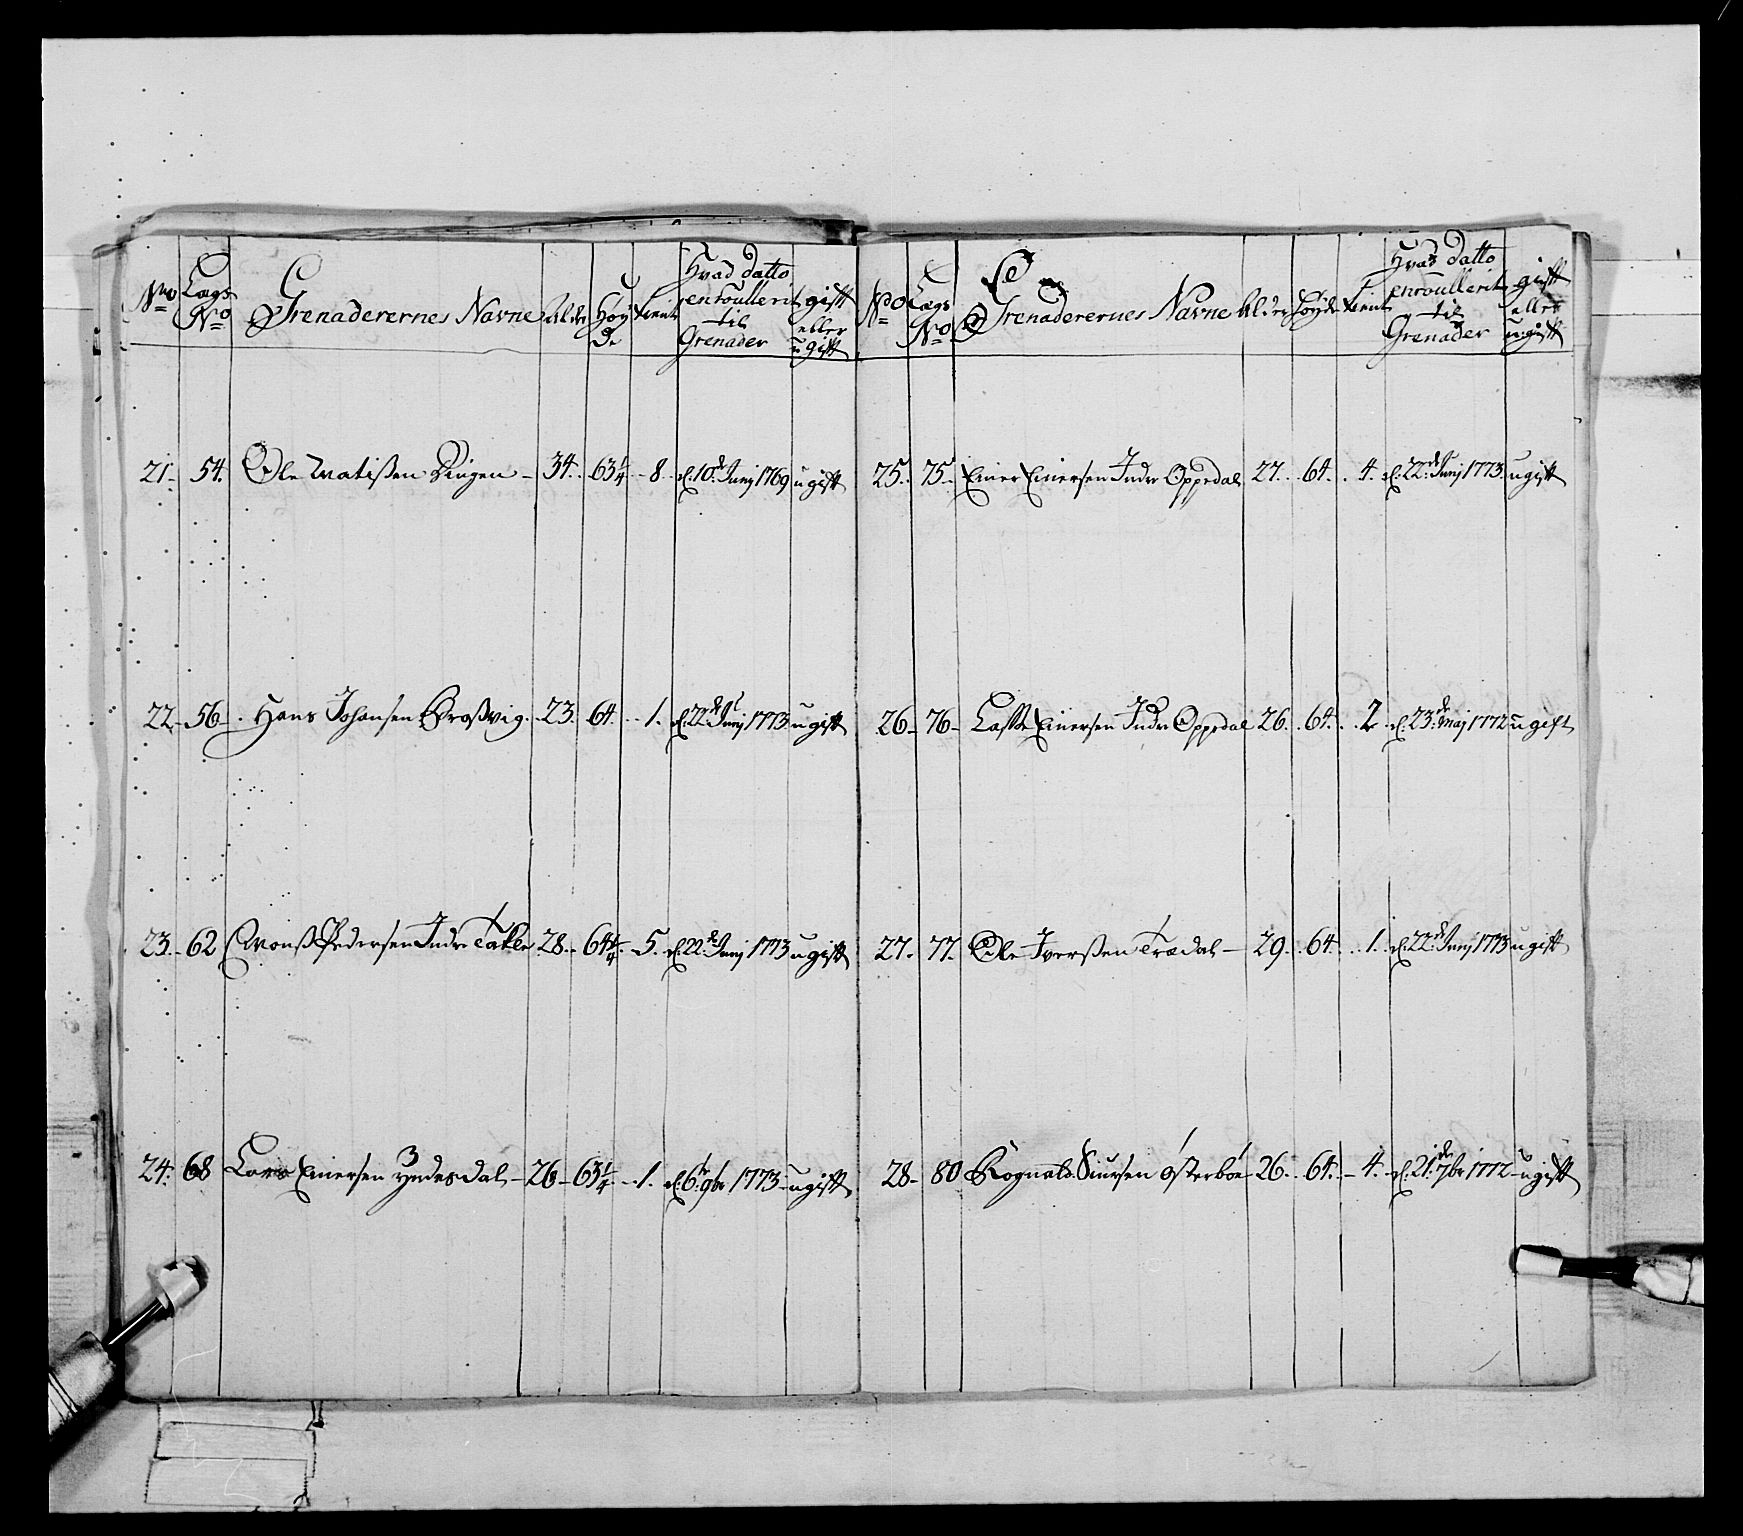 No Lægs No Grenaderernes Navne Alder Høyde tient Hvad datto enroullerit til Grenader gift eller ugift
21. 54. Ole Matisen Ringen 34. 63¼ 8. d. 10de Junij 1769 ugift
22. 56. Hans Johansen Brosvig 23. 64. 1. d. 22de Junij 1773 ugift
23. 62 Mons Pedersen Indre Takle 28. 64 5. d. 22de Junij 1773 ugift
24. 68 Lars Einersen Yndesdal 26 63¼ 1. d. 6te 9br 1773 ugift
No Lægs No Grenaderernes Navne Alder Høyde tient Hvad datto enroullerit til Grenader gift eller ugift
25. 75. Einer Einersen Indre Oppedal 27. 64. 4. d. 22de Junij 1773. ugift
26. 76 Lasse Einersen Indre Oppedal 26. 64. 2 d. 23de Maj 1772 ugift
27. 77. Ole Iversen Trædal 29. 64. 1. d. 22de Junij 1773 ugift
28. 80 Rognald Siursen Østerbøe 26. 64. 4. d. 21de 7br 1772 ugift